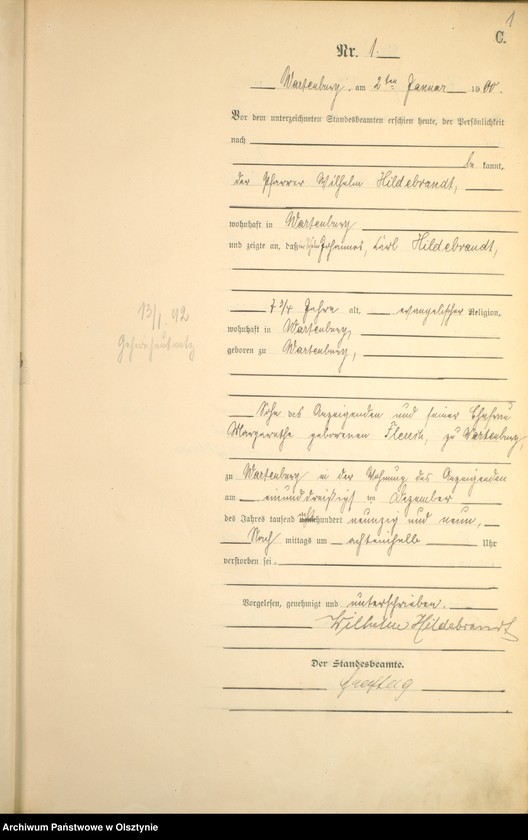 1
C.
Nr. 1.
Wartenburg, am 2ten Januar 1900.
Vor dem unterzeichneten Standesbeamten erschien heute, der Persönlichkeit
nach
be kannt,
der Pfarrer Wilhelm Hildebrandt,
wohnhaft in Wartenburg
und zeigte an, daß Johannes, Carl Hildebrandt,
7 3/4 Jahre alt, evangelischer Religion,
wohnhaft in Wartenburg,
geboren zu Wartenburg,
Sohn des Anzeigenden und seiner Ehefrau
Margarethe geborenen zu Wartenburg,
zu Wartenburg in der Wohnung des Anzeigenden
am einunddreißigsten Dezember
des Jahres tausend achthundert neunzig und neun,
Nach mittags um achteinhalb Uhr
verstorben sei.
Vorgelesen, genehmigt und unterschrieben.
Wilhelm Hildebrandt
Der Standesbeamte.
Freytag
13/1. 42
Archiwum Państwowe w Olsztynie